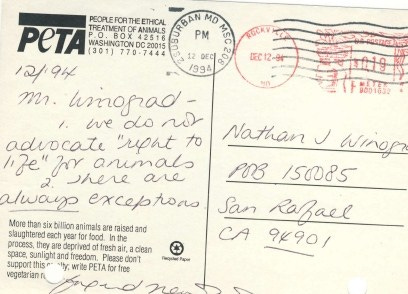 PETA
PEOPLE FOR THE ETHICAL
TREATMENT OF ANIMALS
P.O. BOX 42516
WASHINGTON DC 20015
(301) 770-7444
SUBURBAN MD MSC 208
PM
12 DEC
1994
ROCKVILLE
DEC 12-94
MD
019
12/94
Mr. Winograd -
1. We do not
advocate "right to
life" for animals
2. There are
always exceptions
Nathan J Winogra
POB 150085
San Rafael
CA 94901
More than six billion animals are raised and
slaughtered each year for food. In the
process, they are deprived of fresh air, a clean
space, sunlight and freedom. Please don't
support this; write PETA for free
vegetarian
Recycled Paper